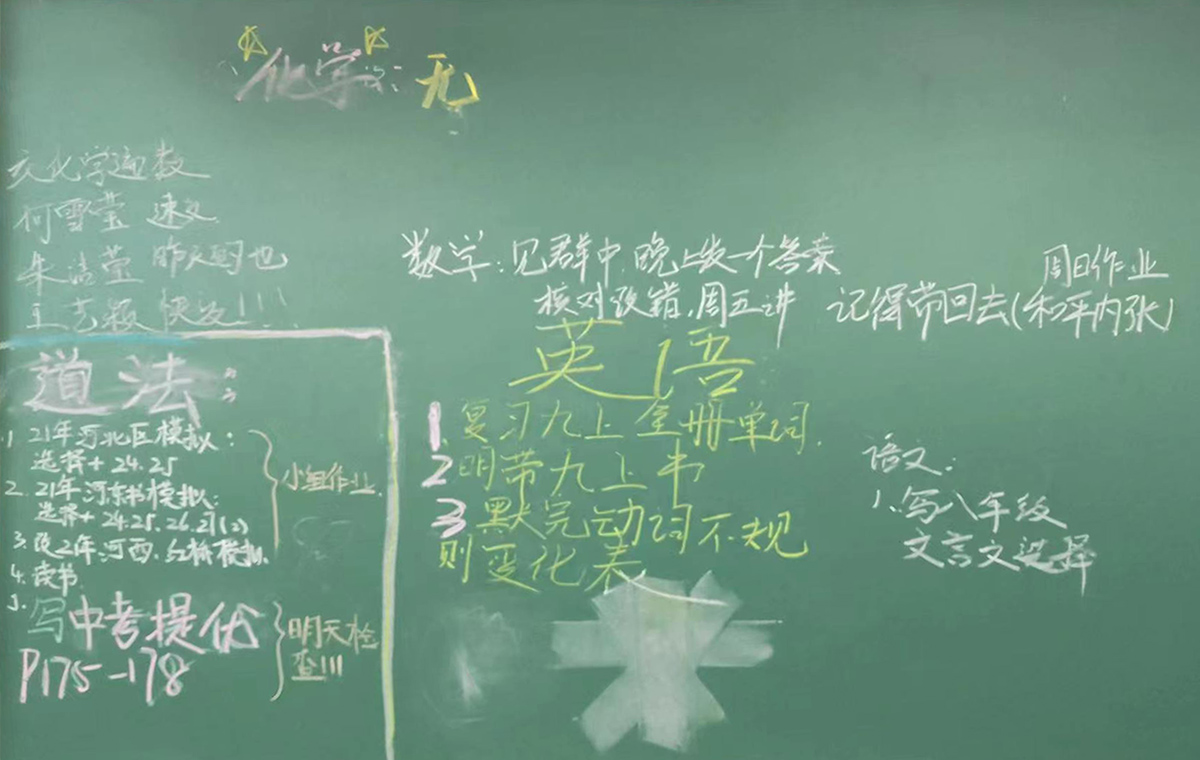 化学：无
交化学遍数
何雪莹 速交
朱洁莹 昨天的也
快发!!!
数学：见群中，晚上发一个答案
核对改错，周五讲
周日作业
记得带回去(和平内张)
道法：
1. 21年河北区模拟：
选择+24.25
2. 21年河东书模拟：
选择+24.25.26.21(2)
3. 改21年.河西.红桥模拟.
4. 读书.
小组作业.
5. 写中考提优
P175-178
明天检
查!!!
英语
1. 复习九上全册单词.
2 明带九上书
3 默完动词不规
则变化表
语文：
1. 写八年级
文言文选择